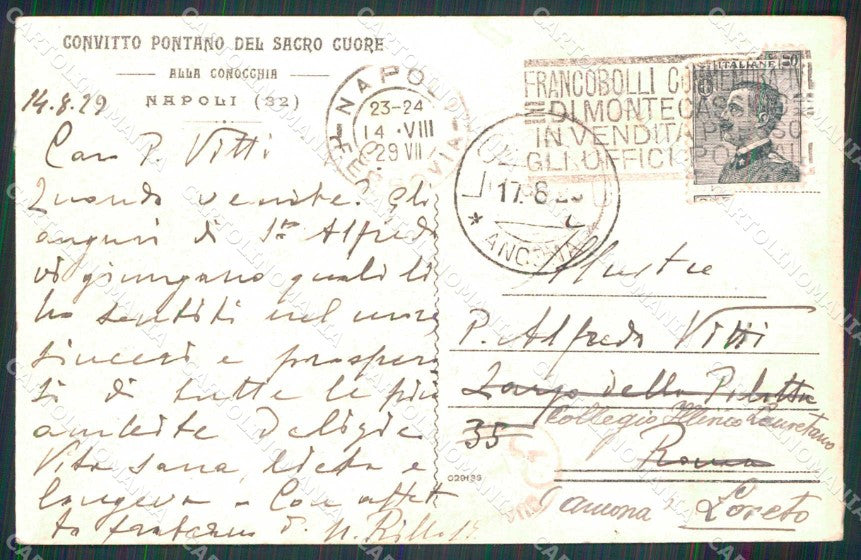 CONVITTO PONTANO DEL SACRO CUORE
ALLA CONOCCHIA
NAPOLI (32)
14.8.29
Caro P. Vitti
Quando venite? Gli
auguri di S. Alfredo
vi giungano quali li
ho sentiti nel cuore
sinceri e
di tutte le più
ambite
Vita sana lieta e
longeva - Con affet
to fraterno
NAPOLI
23-24
14·VIII
29 VII
FERROVIA
FRANCOBOLLI COMMEMORATIVI
DI MONTECASSINO
IN VENDITA PRESSO
GLI UFFICI POSTALI
ITALIANE 50
17.8.29
* ANCONA
Illustre
P. Alfredo Vitti
Largo della Pilotta
35
Collegio Illirico Lauretano
Roma
Ancona Loreto
029199
CARTOLINOMANIA